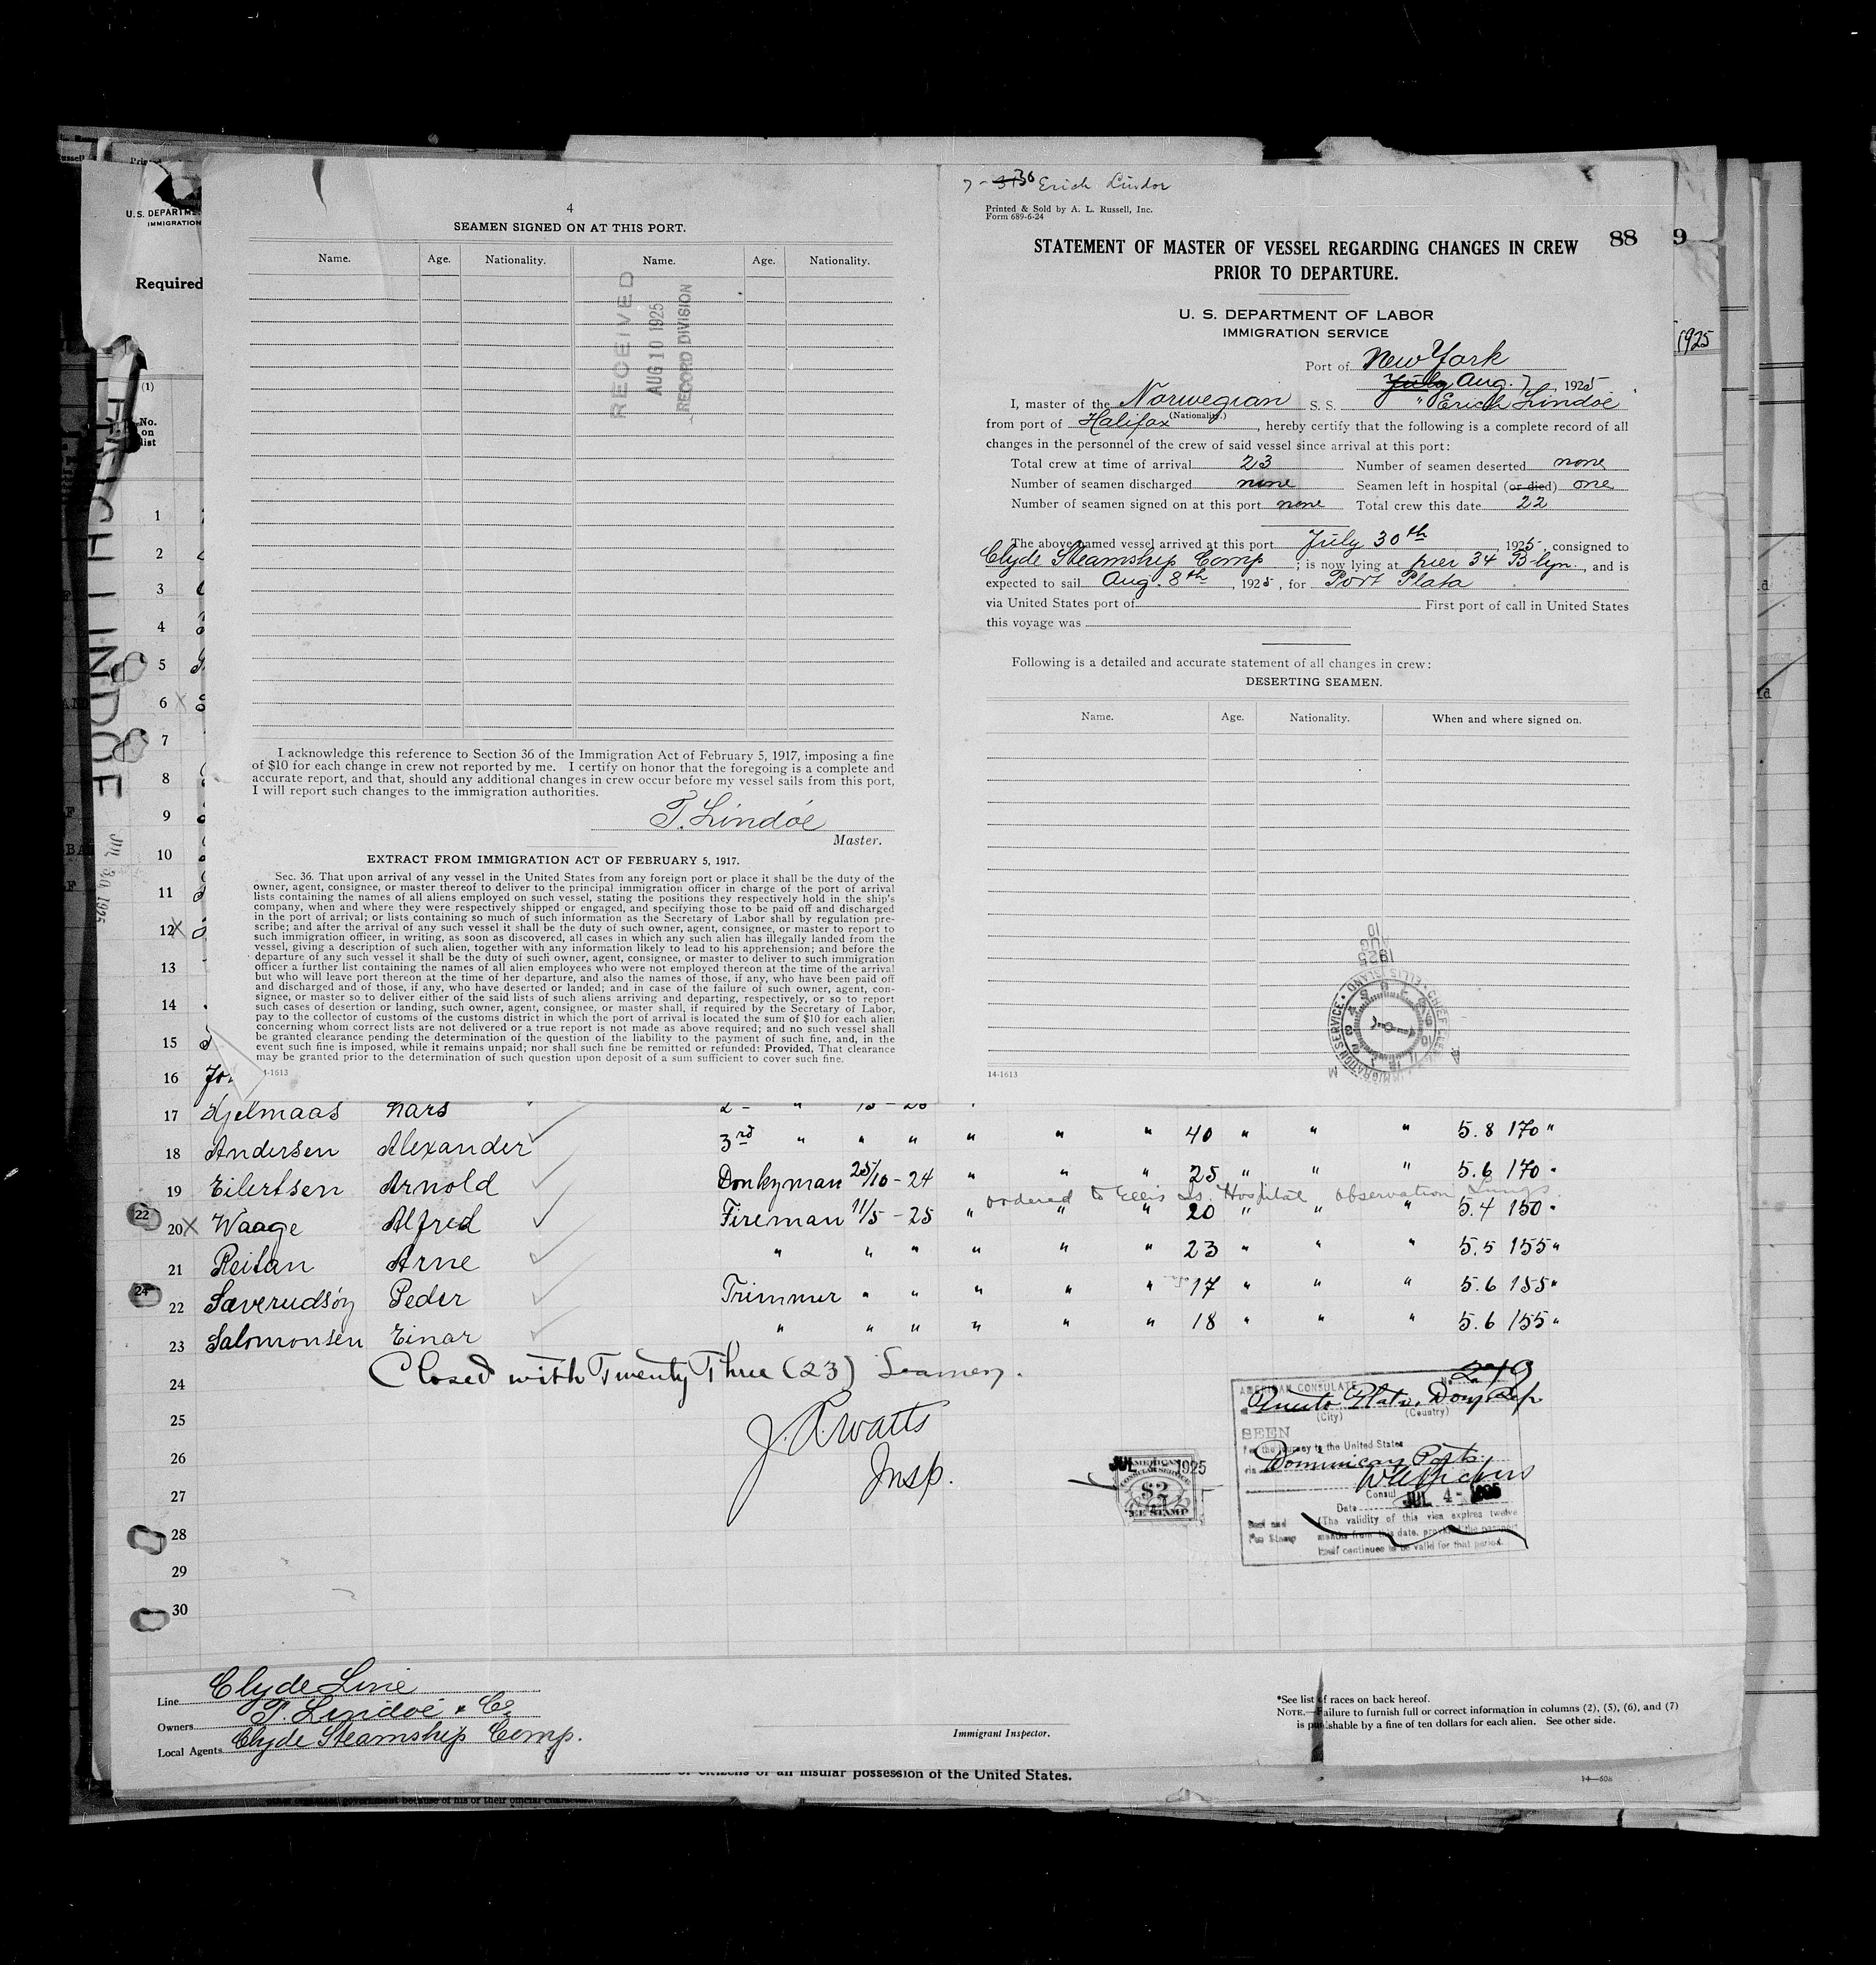 4
SEAMEN SIGNED ON AT THIS PORT.
Name. Age. Nationality. Name. Age. Nationality.
RECEIVED
AUG 10 1925
RECORD DIVISION
I acknowledge this reference to Section 36 of the Immigration Act of February 5, 1917, imposing a fine
of $10 for each change in crew not reported by me. I certify on honor that the foregoing is a complete and
accurate report, and that, should any additional changes in crew occur before my vessel sails from this port,
I will report such changes to the immigration authorities.
T. Lindöe
Master.
EXTRACT FROM IMMIGRATION ACT OF FEBRUARY 5, 1917.
Sec. 36. That upon arrival of any vessel in the United States from any foreign port or place it shall be the duty of the
owner, agent, consignee, or master thereof to deliver to the principal immigration officer in charge of the port of arrival
lists containing the names of all aliens employed on such vessel, stating the positions they respectively hold in the ship's
company, when and where they were respectively shipped or engaged, and specifying those to be paid off and discharged
in the port of arrival; or lists containing so much of such information as the Secretary of Labor shall by regulation pre-
scribe; and after the arrival of any such vessel it shall be the duty of such owner, agent, consignee, or master to report to
such immigration officer, in writing, as soon as discovered, all cases in which any such alien has illegally landed from the
vessel, giving a description of such alien, together with any information likely to lead to his apprehension; and before the
departure of any such vessel it shall be the duty of such owner, agent, consignee, or master to deliver to such immigration
officer a further list containing the names of all alien employees who were not employed thereon at the time of the arrival
but who will leave port thereon at the time of her departure, and also the names of those, if any, who have been paid off
and discharged and of those, if any, who have deserted or landed; and in case of the failure of such owner, agent, con-
signee, or master so to deliver either of the said lists of such aliens arriving and departing, respectively, or so to report
such cases of desertion or landing, such owner, agent, consignee, or master, shall, if required by the Secretary of Labor,
pay to the collector of customs of the customs district in which the port of arrival is located the sum of $10 for each alien
concerning whom correct lists are not delivered or a true report is not made as above required; and no such vessel shall
be granted clearance pending the determination of the question of the liability to the payment of such fine, and, in the
event such fine is imposed, while it remains unpaid; nor shall such fine be remitted or refunded: Provided, That clearance
may be granted prior to the determination of such question upon deposit of a sum sufficient to cover such fine.
4-1613
7-30 Erich Lindoe
Printed & Sold by A. L. Russell, Inc.
Form 689-6-24
STATEMENT OF MASTER OF VESSEL REGARDING CHANGES IN CREW 88 9
PRIOR TO DEPARTURE.
U. S. DEPARTMENT OF LABOR
IMMIGRATION SERVICE
1925
Port of New York
July Aug. 7, 1925
I, master of the Norwegian S. S. "Erich Lindöe"
(Nationality.)
from port of Halifax, hereby certify that the following is a complete record of all
changes in the personnel of the crew of said vessel since arrival at this port:
Total crew at time of arrival 23 Number of seamen deserted none
Number of seamen discharged none Seamen left in hospital (or died) one
Number of seamen signed on at this port none Total crew this date 22
The above named vessel arrived at this port July 30th, 1925, consigned to
Clyde Steamship Comp; is now lying at pier 34 B-lyn., and is
expected to sail Aug. 8th, 1925, for Port Plata
via United States port of First port of call in United States
this voyage was
Following is a detailed and accurate statement of all changes in crew:
DESERTING SEAMEN.
Name. Age. Nationality. When and where signed on.
AUG 10 1925
14-1613
U. S. DEPARTME
IMMIGRATION
Required
(1)
No.
on
list
ERICH LINDÖE
JUL 30 1925
1
2
3
4
5
6 X
7
8
9
10
11
12 X
13
14
15
16
17 Hjelmaas Lars 2 - "
18 Andersen Alexander 3rd " " " " " " 40 " " " 5.8 170 "
19 Eilertsen Arnold Donkyman 25/10 - 24 " " " 25 " " " 5.6 170 "
ordered to Ellis Is. Hospital, observation Lungs.
22 20 X Waage Alfred Fireman 11/5 - 25 " " " 20 " " " 5.4 150 "
21 Reitan Arne " " " " " " 23 " " " 5.5 155 "
24 22 Sæverudsöy Peder Trimmer " " " " " 17 " " " 5.6 155 "
23 Salomonsen Einar " " " " " " 18 " " " 5.6 155 "
24 Closed with Twenty Three (23) Seamen.
25 J. R. Watts
26 Insp.
27
28
29
30
JUL 4 1925
AMERICAN
CONSULAR SERVICE
$2
FEE STAMP
AMERICAN CONSULATE No. 249
Puerto Plata, Dom. Rep.
(City) (Country)
SEEN
For the journey to the United States
via Dominican Ports
Consul
Date JUL 4 - 1925
(The validity of this visa expires twelve
months from this date, provided the passport
itself continues to be valid for that period.
Line Clyde Line
Owners T. Lindöe & Co.
Local Agents Clyde Steamship Comp.
Immigrant Inspector.
*See list of races on back hereof.
NOTE.—Failure to furnish full or correct information in columns (2), (5), (6), and (7)
is punishable by a fine of ten dollars for each alien. See other side.
of citizens of an insular possession of the United States.